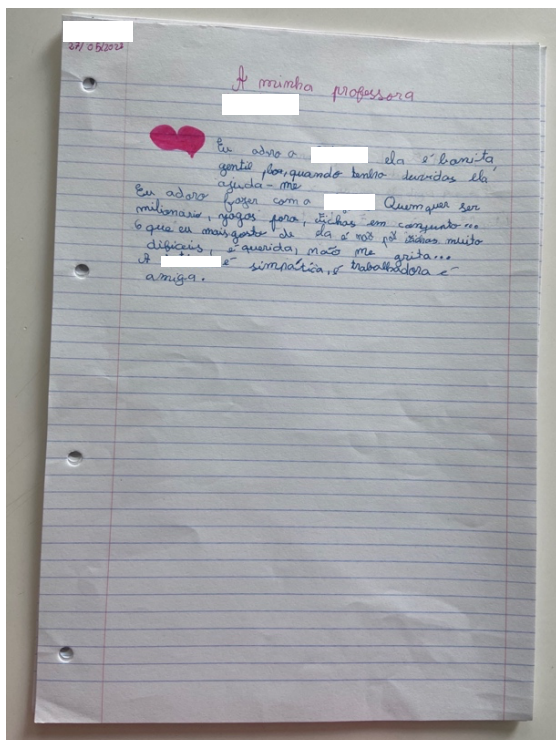 27/05/2022
A minha professora
Eu adoro a ela é bonita
gentil boa, quando tenho duvidas ela
ajuda-me
Eu adoro fazer com a Quem quer ser
milionário, jogos fora, fichas em conjunto...
O que eu mais gosto de ela é não pôr fichas muito
difíceis, é querida, não me grita...
A é simpática, é trabalhadora é
amiga.